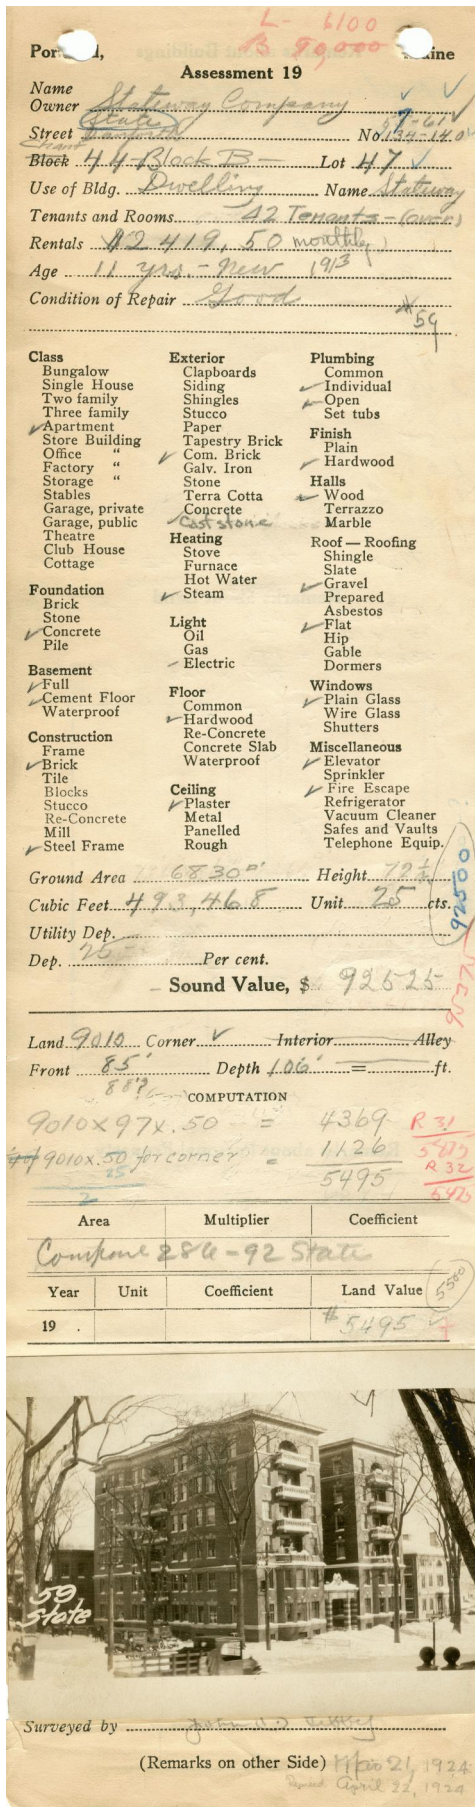 L- 6100
B 90,000
Assessment 19
Name
Owner Stateway Company
State 57-61
Street Danforth No. 134-140
Chart
Block 44-Block B- Lot 47
Use of Bldg. Dwelling Name Stateway
Tenants and Rooms 42 Tenants-(over)
Rentals $2419,50 monthly
Age 11 yrs.- new 1913
Condition of Repair Good
59
Class
Bungalow
Single House
Two family
Three family
Apartment
Store Building
Office "
Factory "
Storage "
Stables
Garage, private
Garage, public
Theatre
Club House
Cottage
Foundation
Brick
Stone
Concrete
Pile
Basement
Full
Cement Floor
Waterproof
Construction
Frame
Brick
Tile
Blocks
Stucco
Re-Concrete
Mill
Steel Frame
Exterior
Clapboards
Siding
Shingles
Stucco
Paper
Tapestry Brick
Com. Brick
Galv. Iron
Stone
Terra Cotta
Concrete
Cast stone
Heating
Stove
Furnace
Hot Water
Steam
Light
Oil
Gas
Electric
Floor
Common
Hardwood
Re-Concrete
Concrete Slab
Waterproof
Ceiling
Plaster
Metal
Panelled
Rough
Plumbing
Common
Individual
Open
Set tubs
Finish
Plain
Hardwood
Halls
Wood
Terrazzo
Marble
Roof — Roofing
Shingle
Slate
Gravel
Prepared
Asbestos
Flat
Hip
Gable
Dormers
Windows
Plain Glass
Wire Glass
Shutters
Miscellaneous
Elevator
Sprinkler
Fire Escape
Refrigerator
Vacuum Cleaner
Safes and Vaults
Telephone Equip.
Ground Area 6830 Height 72 1/4
Cubic Feet 493,468 Unit 25 cts.
92500
Utility Dep.
Dep. 25 Per cent.
Sound Value, $ 92525
Land 9010 Corner Interior Alley
Front 85' Depth 106' = ft.
88?
COMPUTATION
9010 x 97 x .50 = 4369
9010 x .50 for corner = 1126
25
2
5495
R 31
5475
R 32
5475
Area Multiplier Coefficient
Compare 286-92 State
Year Unit Coefficient Land Value
5500
19 . $5495
59
State
Surveyed by
(Remarks on other Side) Mar 21, 1924
Revised April 22, 1924